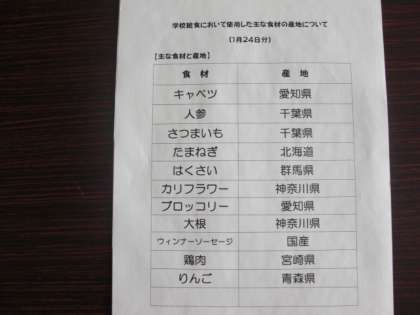 学校給食において使用した主な食材の産地について
(1月24日分)
【主な食材と産地】
食材 産地
キャベツ 愛知県
人参 千葉県
さつまいも 千葉県
たまねぎ 北海道
はくさい 群馬県
カリフラワー 神奈川県
ブロッコリー 愛知県
大根 神奈川県
ウィンナーソーセージ 国産
鶏肉 宮崎県
りんご 青森県